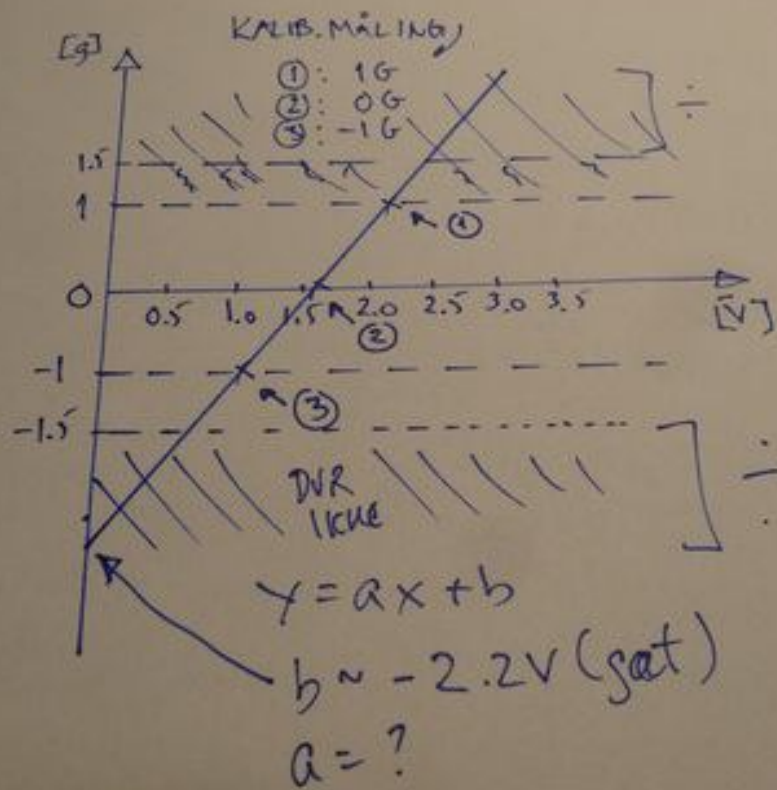 KALIB. MÅLING
[g]
①: 1G
②: 0G
③: -1G
÷
1.5
1
①
0
0.5 1.0 1.5 2.0 2.5 3.0 3.5
[V]
②
-1
③
-1.5
DUR
IKKE
÷
y = ax + b
b ~ -2.2V (gæt)
a = ?